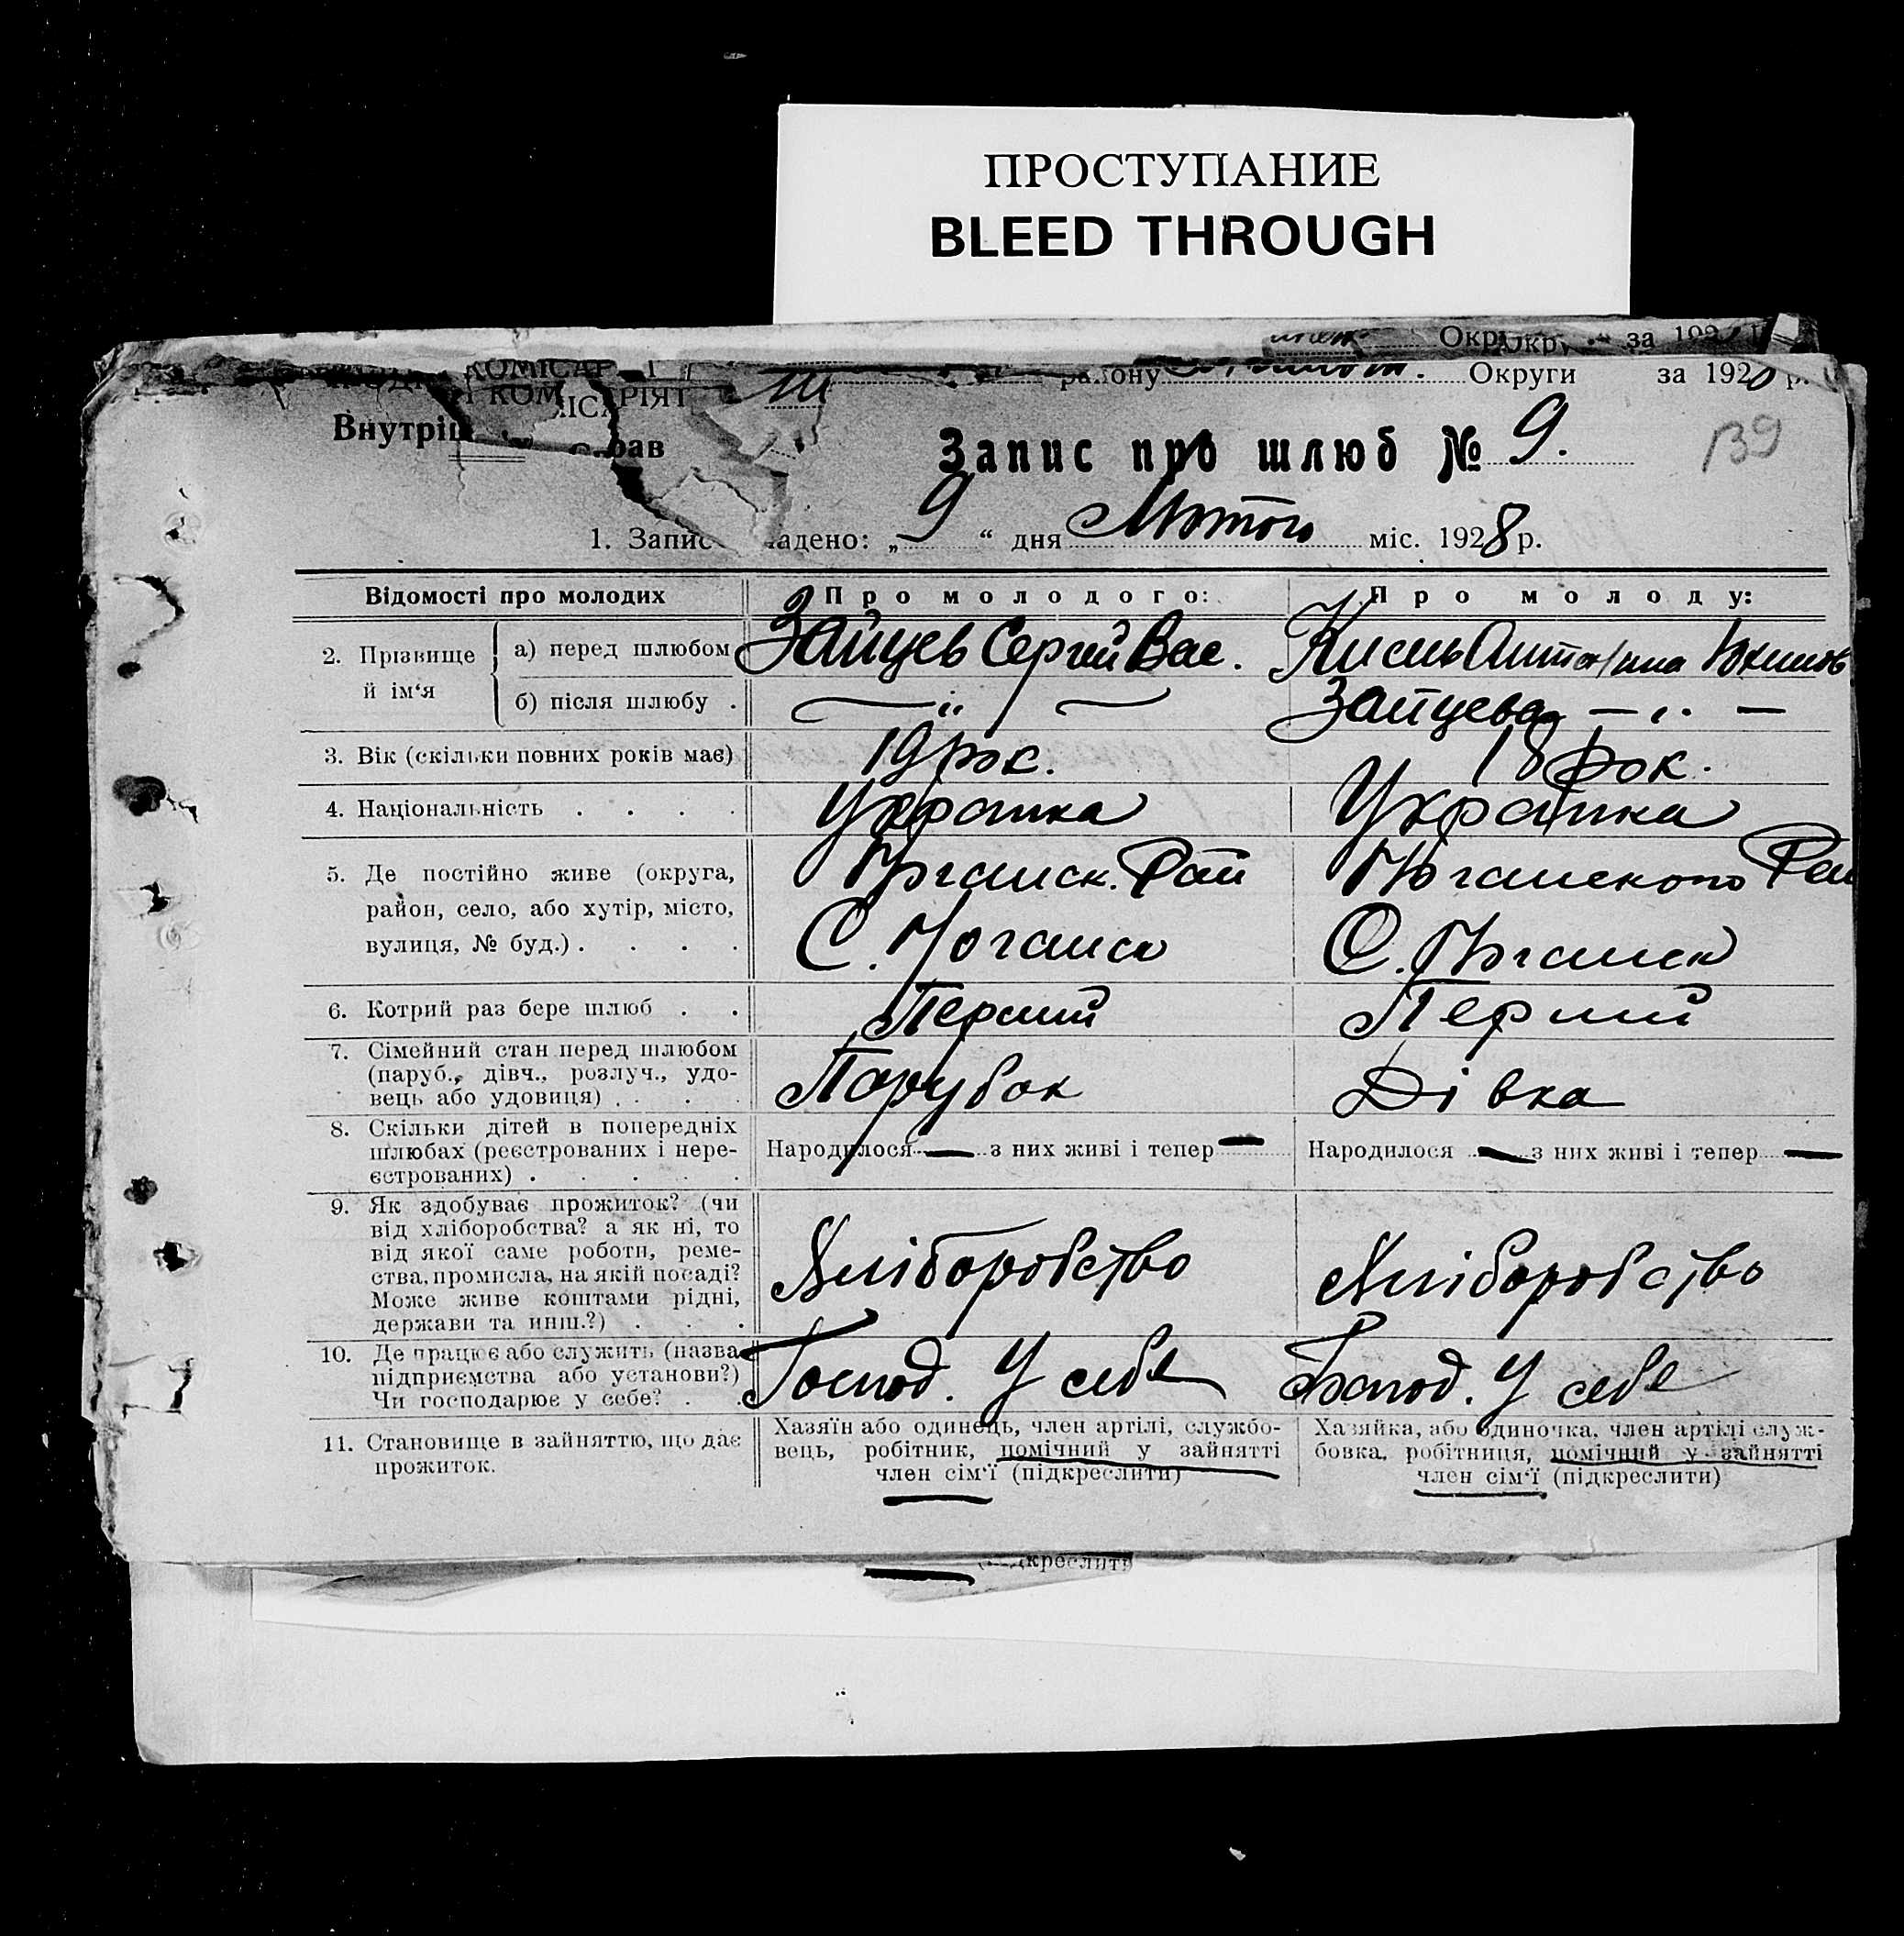 ПРОСТУПАНИЕ
BLEED THROUGH
Округи за 192
району Округи за 1928 р.
Внутрі рав
Запис про шлюб № 9.
139
1. Запис адено: „ 9 “ дня Лютого міс. 1928 р.
Відомості про молодих Про молодого: Про молоду:
2. Прізвище й ім‘я
а) перед шлюбом Зайцев Сергій Вас. Кисиль Антонина
б) після шлюбу . — „ — Зайцева — „ —
3. Вік (скільки повних років має) 19 рок. 18 рок.
4. Національність . . . . Украінка Украінка
5. Де постійно живе (округа,
район, село, або хутір, місто,
вулиця, № буд.) . . . .
Ногайск. Рай Ногайского Рай
С. Ногайск С. Ногайск
6. Котрий раз бере шлюб . . Перший Перший
7. Сімейний стан перед шлюбом
(паруб., дівч., розлуч., удо-
вець або удовиця) . . . Парубок Дівка
8. Скільки дітей в попередніх
шлюбах (реєстрованих і нере-
єстрованих) . . . . .
Народилося — з них живі і тепер — Народилося — з них живі і тепер —
9. Як здобуває прожиток? (чи
від хліборобства? а як ні, то
від якої саме роботи, реме-
ства, промисла, на якій посаді?
Може живе коштами рідні,
держави та инш.?) . . .
Хліборобство Хліборобство
10. Де працює або служить (назва
підприємства або установи?)
Чи господарює у себе? . .
Господ. У себе Господ. У себе
11. Становище в зайняттю, що дає
прожиток.
Хазяїн або одинець, член артілі, службо-
вець, робітник, помічний у зайнятті
член сім‘ї (підкреслити)
Хазяйка, або одиночка, член артілі служ-
бовка, робітниця, помічний у зайнятті
член сім‘ї (підкреслити)